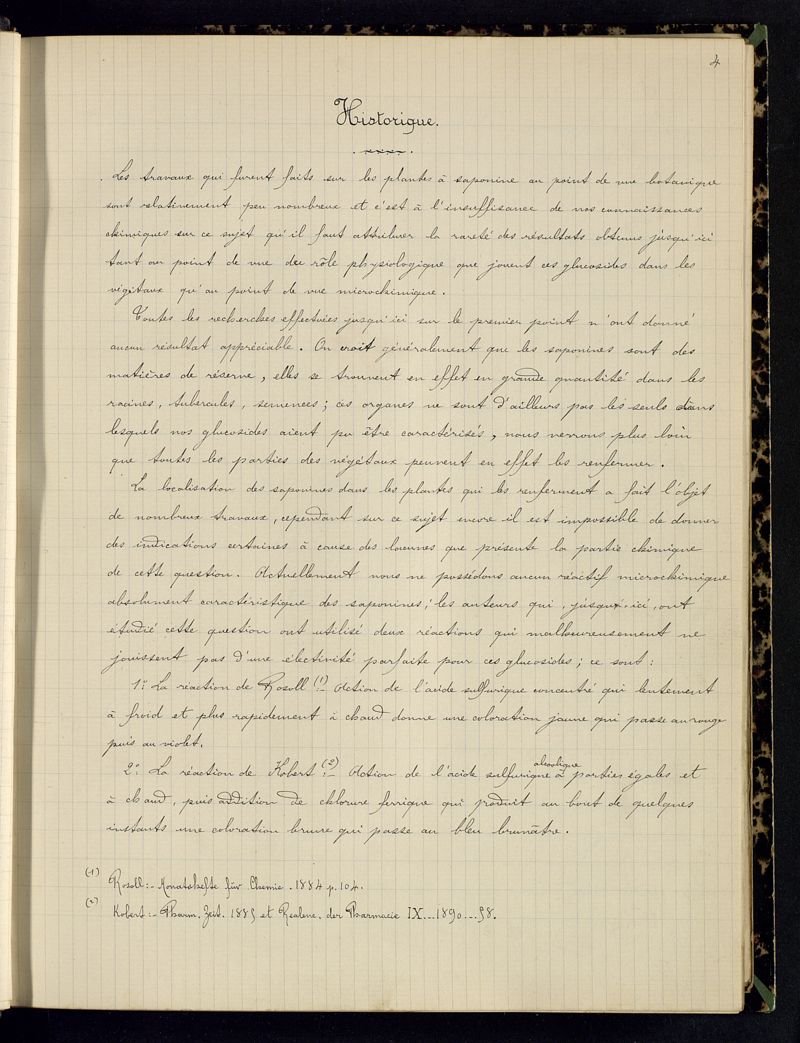 4
Historique.
Les travaux qui furent faits sur les plantes à saponine au point de vue botanique
sont relativement peu nombreux et c'est à l'insuffisance de nos connaissances
chimiques sur ce sujet qu'il faut attribuer la rareté des résultats obtenus jusqu'ici
tant au point de vue du rôle physiologique que jouent ces glucosides dans les
végétaux qu'au point de vue microchimique.
Toutes les recherches effectuées jusqu'ici sur le premier point n'ont donné
aucun résultat appréciable. On croit généralement que les saponines sont des
matières de réserve, elles se trouvent en effet en grande quantité dans les
racines, tubercules, semences; ces organes ne sont d'ailleurs pas les seuls dans
lesquels nos glucosides aient pu être caractérisés, nous verrons plus loin
que toutes les parties des végétaux peuvent en effet les renfermer.
La localisation des saponines dans les plantes qui les renferment a fait l'objet
de nombreux travaux, cependant sur ce sujet encore il est impossible de donner
des indications certaines à cause des lacunes que présente la partie chimique
de cette question. Actuellement nous ne possédons aucun réactif microchimique
absolument caractéristique des saponines; les auteurs qui, jusqu'ici, ont
étudié cette question ont utilisé deux réactions qui malheureusement ne
jouissent pas d'une électivité parfaite pour ces glucosides; ce sont:
1º La réaction de Rosoll (1).- Action de l'acide sulfurique concentré qui lentement
à froid et plus rapidement à chaud donne une coloration jaune qui passe au rouge
puis au violet.
2º La réaction de Kobert (2).- Action de l'acide sulfurique alcoolique à parties égales et
à chaud, puis addition de chlorure ferrique qui produit au bout de quelques
instants une coloration brune qui passe au bleu brunâtre.
(1) Rosoll:- Monatshefte für Chemie. 1884 p. 104.
(2) Kobert:- Pharm. Zeit. 1885 et Realenc. der Pharmacie IX... 1890... 58.